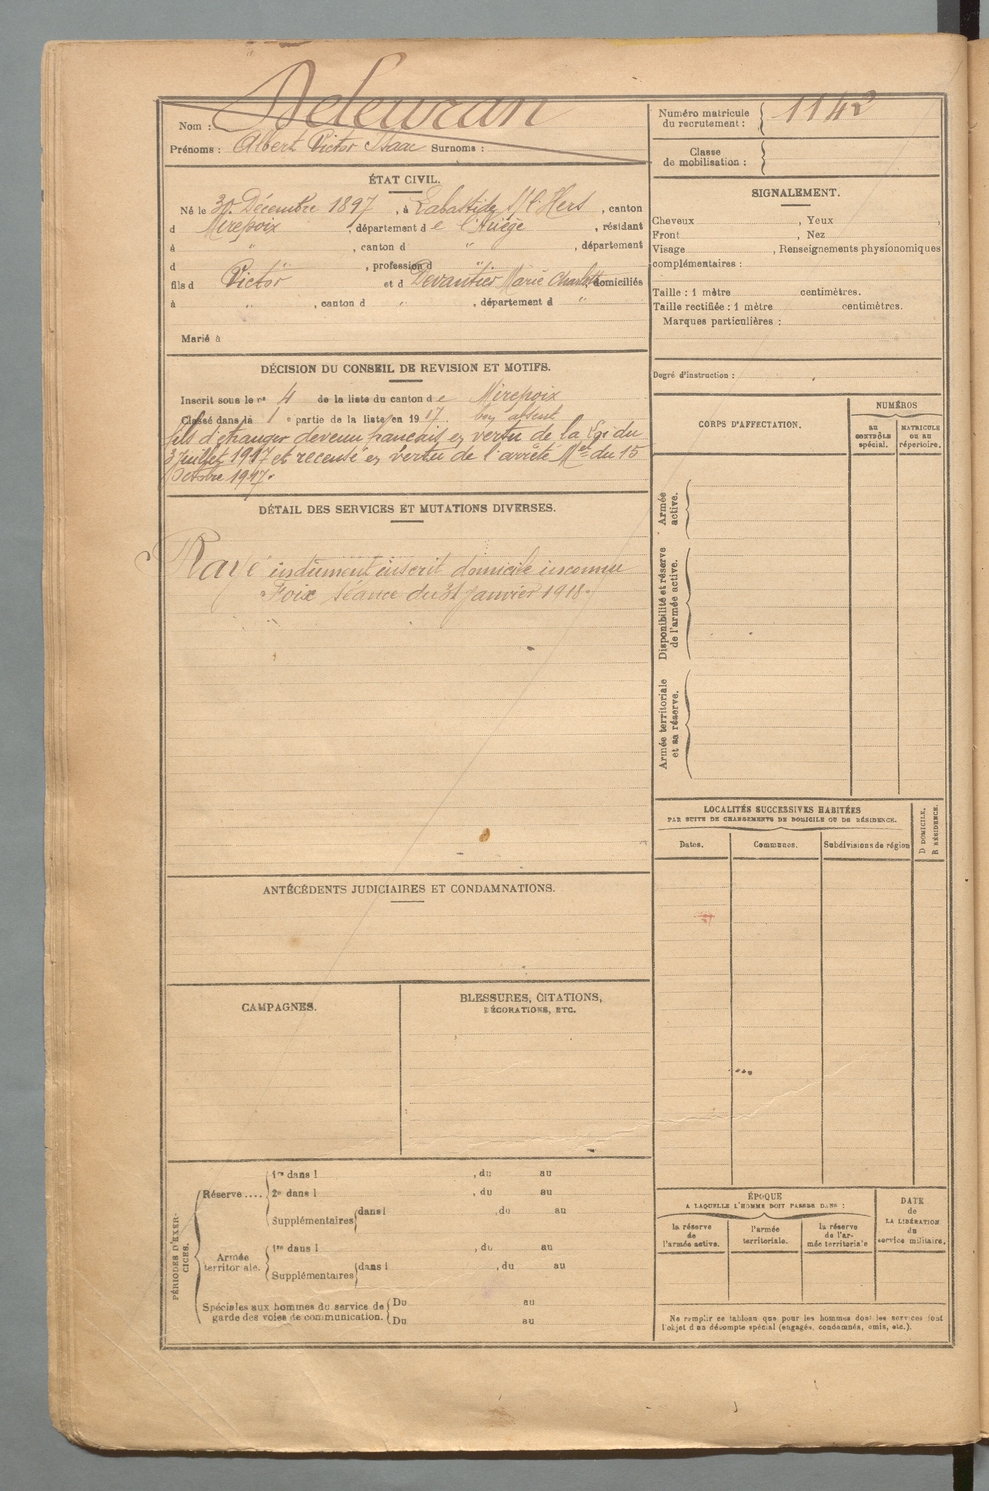 Nom : Deleuran
Prénoms : Albert Victor Isaac Surnoms :
Numéro matricule du recrutement : 1142
Classe de mobilisation :
ÉTAT CIVIL.
Né le 30 Décembre 1897, à Labastide s/l'Hers, canton
d Mirepoix, département de l'Ariège, résidant
à ", canton d ", département
d ", profession d "
fils d Victor et d Devantier Marie Charlotte domiciliés
à ", canton d ", département d "
Marié à
SIGNALEMENT.
Cheveux , Yeux
Front , Nez
Visage , Renseignements physionomiques
complémentaires :
Taille : 1 mètre centimètres.
Taille rectifiée : 1 mètre centimètres.
Marques particulières :
Degré d'instruction :
DÉCISION DU CONSEIL DE REVISION ET MOTIFS.
Inscrit sous le nº 4 de la liste du canton de Mirepoix
Classé dans la 1 e partie de la liste en 1917 bon absent
fils d'étranger devenu français en vertu de la Loi du
3 Juillet 1917 et recensé en vertu de l'arrêté Mel du 15
Octobre 1917.
DÉTAIL DES SERVICES ET MUTATIONS DIVERSES.
Rayé indûment inscrit domicile inconnu
Foix séance du 31 janvier 1918.
CORPS D'AFFECTATION.
NUMÉROS
AU CONTRÔLE spécial.
MATRICULE OU AU répertoire.
Armée active.
Disponibilité et réserve de l'armée active.
Armée territoriale et sa réserve.
LOCALITÉS SUCCESSIVES HABITÉES
PAR SUITE DE CHANGEMENTS DE DOMICILE OU DE RÉSIDENCE.
Dates.
Communes.
Subdivisions de région
D DOMICILE.
R RÉSIDENCE.
ANTÉCÉDENTS JUDICIAIRES ET CONDAMNATIONS.
CAMPAGNES.
BLESSURES, CITATIONS,
DÉCORATIONS, ETC.
PÉRIODES D'EXERCICES.
Réserve .... 1re dans l , du au
2e dans l , du au
Supplémentaires dans l , du au
Armée territoriale. 1re dans l , du au
Supplémentaires dans l , du au
Spéciales aux hommes du service de garde des voies de communication. Du au
Du au
ÉPOQUE
A LAQUELLE L'HOMME DOIT PASSER DANS :
la réserve de l'armée active.
l'armée territoriale.
la réserve de l'armée territoriale
DATE de LA LIBÉRATION du service militaire.
Ne remplir ce tableau que pour les hommes dont les services font
l'objet d'un décompte spécial (engagés, condamnés, omis, etc.).